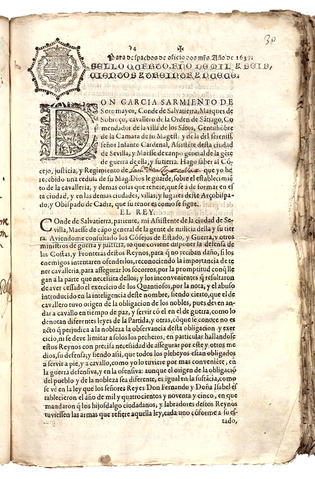 Para despachos de oficio dos mrs. Año de 1639.
SELLO QVARTO, AÑO DE MIL, Y SEIS,
CIENTOS Y TREINTA Y NVEVE.
DON GARCIA SARMIENTO DE
Sotomayor, Conde de Salvatierra, Marques de
Sobroso, cavallero de la Orden de Sãtiago, Co
mendador de la villa de los Sãtos, Gentilhõbre
de la Camara de su Magest. y de la del serenisS.
señor Infante Cardenal, Asistẽte desta ciudad
de Sevilla, y Maesse de cãpo general de la gẽte
de guerra de ella, y su tierra. Hago saber al Cõ
cejo, justicia, y Regimiento de
que yo he
recebido una cedula de su Mag. Dios le guarde, sobre el establecimiẽ
to de la cavalleria, y demas cosas que tiene, que se à de formar en es
ta ciudad, y en las demas ciudades, villas, y lugares deste Arçobispa-
do, y Obispado de Cadiz, que su tenor es como se sigue.
EL REY.
Conde de Salvatierra, pariente, mi Asistente de la ciudad de Se-
villa, Maesse de cãpo general de la gente de milicia della y su tie
rra. Aviendome consultado los Cõsejos de Estado, y Guerra, y otros
ministros de guerra y justicia, lo que conviene disponer la defensa de
las Costas, y Fronteras destos Reynos, para q̃ no reciban daño, si los
enemigos intentaren ofenderlos, reconociendo la importancia de te-
ner cavalleria, para assegurar los socorros, por la promptitud cõ q̃ lle
gan a la parte que necessita dellos; y los inconvenientes q̃ resultaron
de aver cessado el exercicio de los Quantiosos, por la nota, y el abuso
introducido en la inteligencia deste nombre, siendo ciento, que el de
cavallero tuvo origen de la obligacion de los nobles, pues deven an-
dar a cavallo en tiempo de paz, y servir cõ el en el de guerra, como lo
denotan diferentes leyes de la Partida, y otras, cõ que le conoce no es
acto q̃ perjudica a la nobleza la observancia desta obligacion y exer
cicio, ni se deve limitar a solos los pecheros, en particular hallandose
estos Reynos con precisa necessidad de assegurar por este, y otros me
dios, su defensa; y siendo assi, que todos los plebeyos estan obligados
a servir a pie, y a cavallo, como yo lo tuviere por mas conveniente, en
la guerra defensiva, y en la ofensiva: aunque el origen de la obligaciõ
del pueblo y de la nobleza sea diferente, es igual en la sustãcia, como
se vè en la ley que los señores Reyes Don Fernando y Doña Isabel es
tablecieron el año de mil y quatrocientos y noventa y cinco, en que
mandaron q̃ los hijosdalgo ciudadanos, y labradores destos Reynos
tuviessen las armas que refiere aquella ley, cada uno cõforme a su es-
tado,